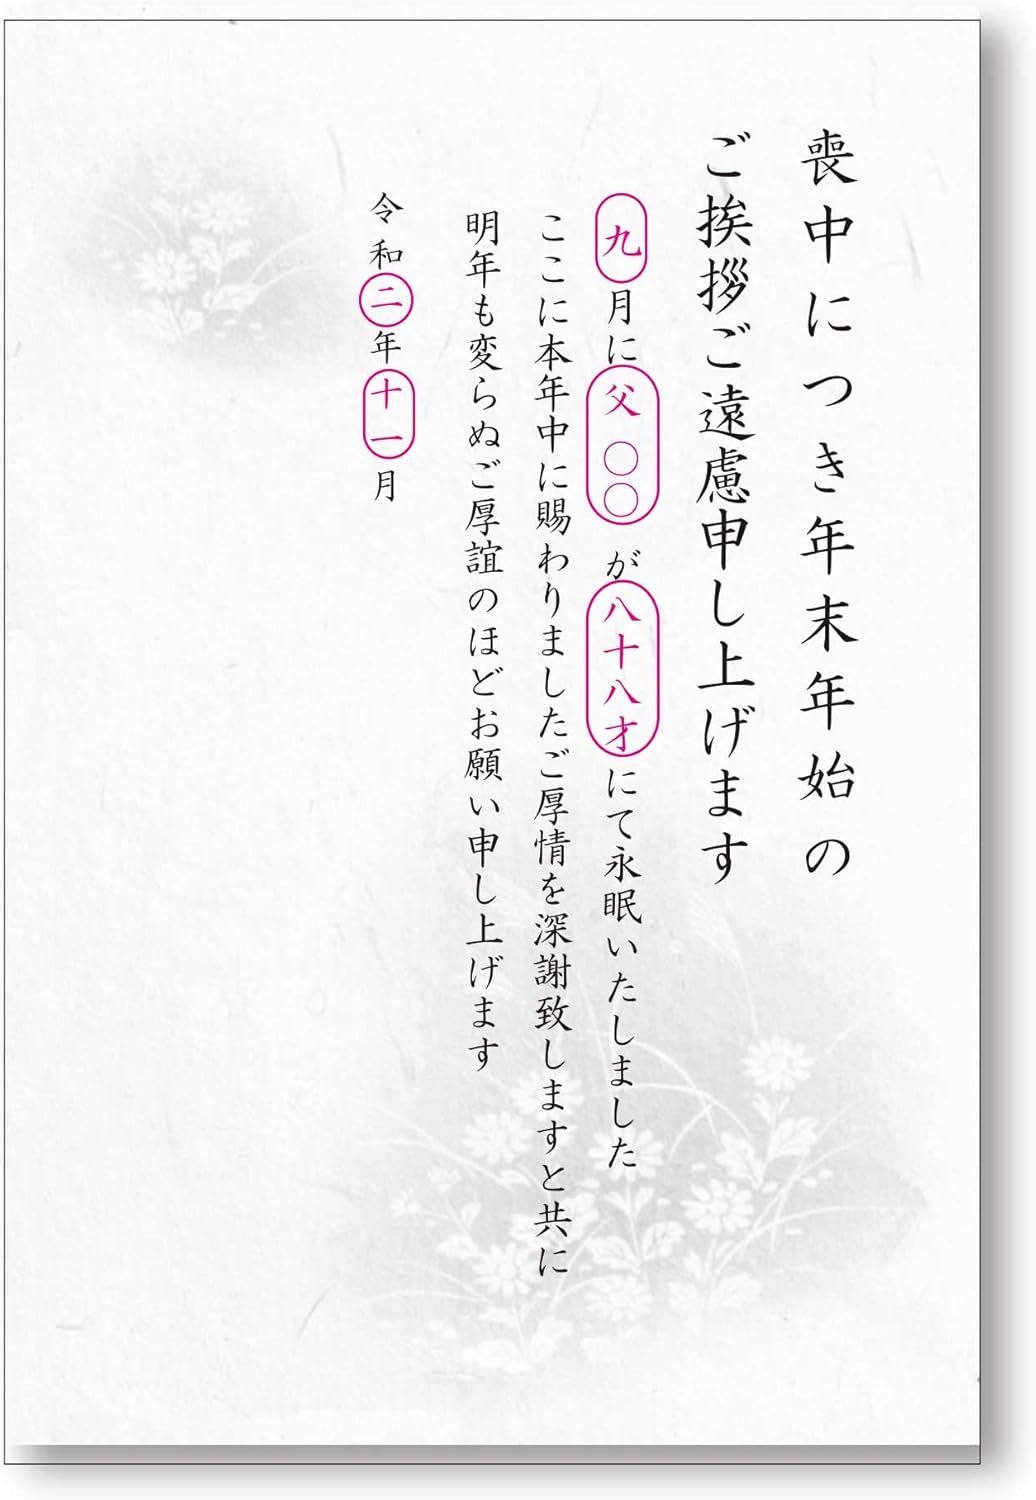 喪中につき年末年始の
ご挨拶ご遠慮申し上げます
九月に父 〇〇 が八十八才にて永眠いたしました
ここに本年中に賜わりましたご厚情を深謝致しますと共に
明年も変らぬご厚誼のほどお願い申し上げます
令和二年十一月